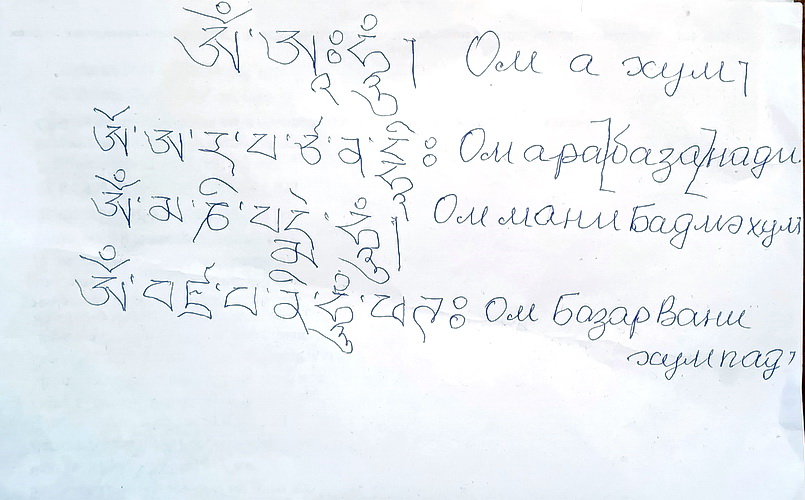 ཨོཾ་ཨཱཿཧཱུྃ། Ом а хум
ཨོཾ་ཨ་ར་པ་ཙ་ན་དྷཱིཿ Ом ара[база]нади
ཨོཾ་མ་ཎི་པདྨེ་ཧཱུྃ། Ом мани Бадмэ хум
ཨོཾ་བཛྲ་པ་ཎི་ཧཱུྃ་ཕཊཿ Ом Базарвани
хум пад